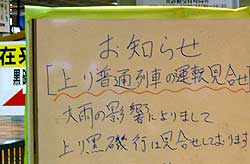 お知らせ
[上り普通列車の運転見合せ]
大雨の影響によりまして
上り黒磯行は見合せしております
在来
黒磯